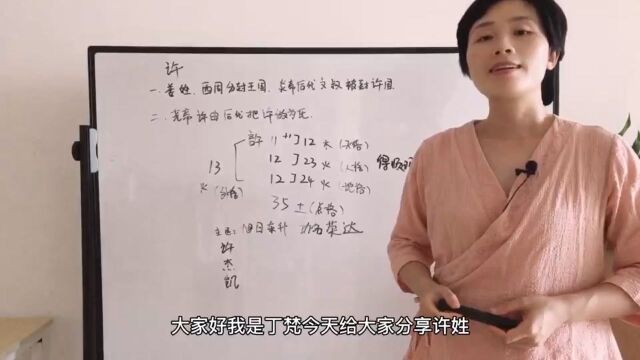 许
一. 姜姓. 西周分封王国. 炎帝后代文叔 被封许国.
二. 尧帝 许由后代把许做为氏.
許 11 +1 】12 木 (天格)
12 】23 火 (人格)
13 火 (外格)
12 】24 火 (地格)
35 土 (总格)
旭日东升 功名荣达
许
杰
凯
大家好我是丁梵今天给大家分享许姓